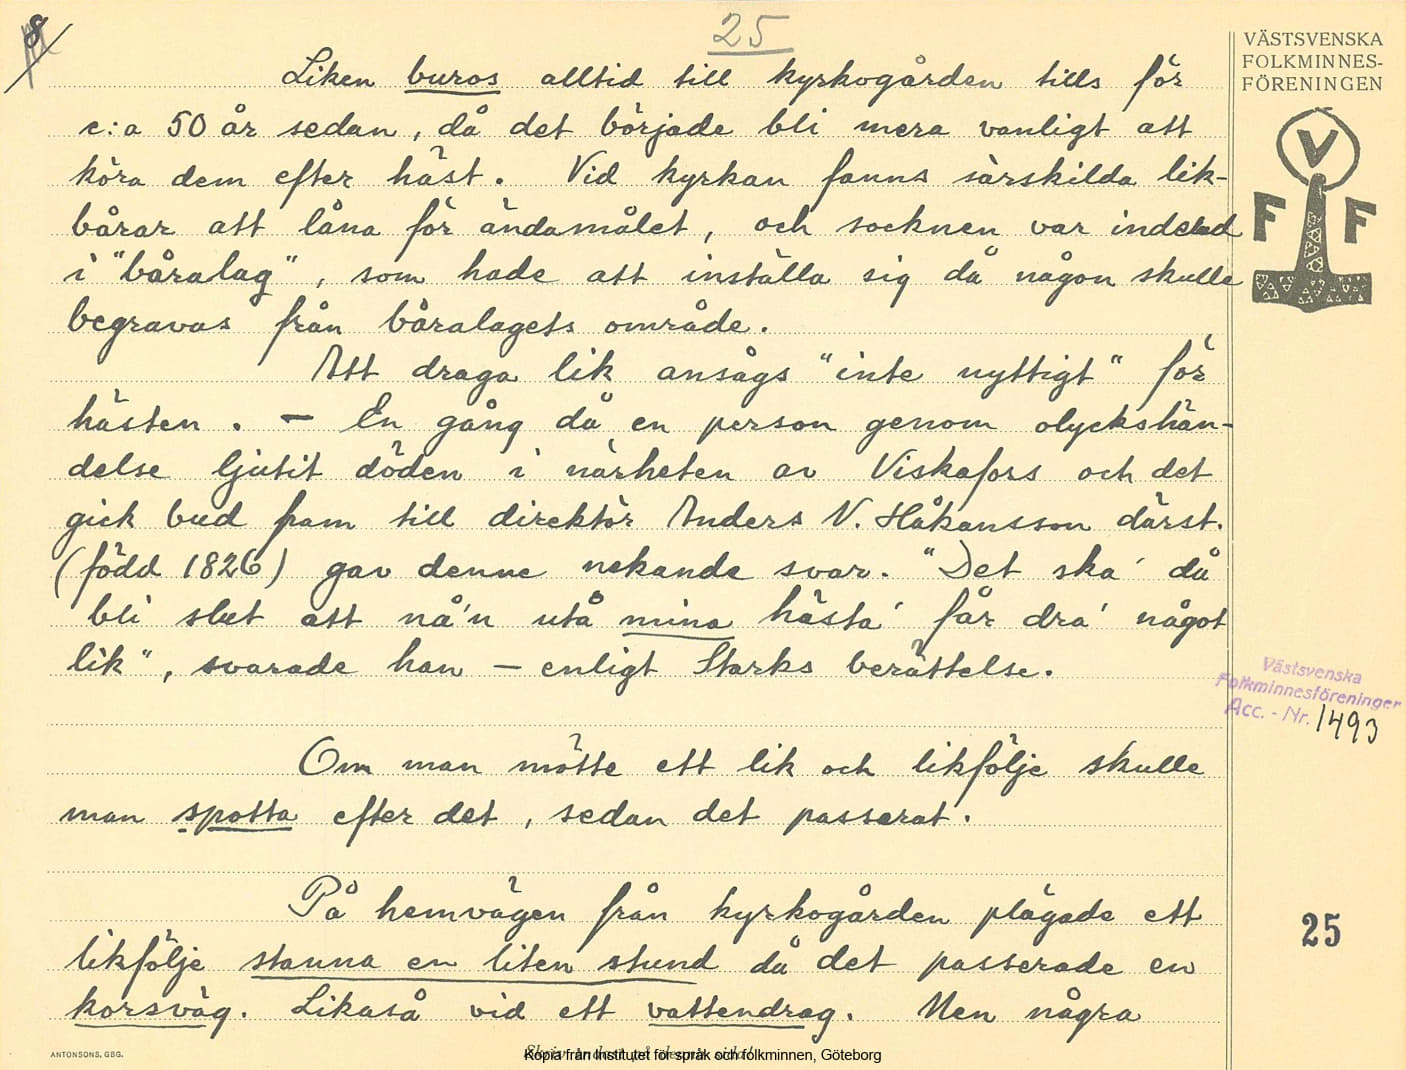 8
25
VÄSTSVENSKA
FOLKMINNES-
FÖRENINGEN
V
F F
Liken buros alltid till kyrkogården tills för
c:a 50 år sedan, då det började bli mera vanligt att
köra dem efter häst. Vid kyrkan fanns särskilda lik-
bårar att låna för ändamålet, och socknen var indelad
i "båralag", som hade att inställa sig då någon skulle
begravas från båralagets område.
Att draga lik ansågs "inte nyttigt" för
hästen. - En gång då en person genom olyckshän-
delse ljutit döden i närheten av Viskafors och det
gick bud fram till direktör Anders V. Håkansson därst.
(född 1826) gav denne nekande svar. "Det ska' då
bli slut att nå'n utå mina hästa' får dra' något
lik", svarade han - enligt Starks berättelse.
Västsvenska
Folkminnesföreningen
Acc. - Nr. 1493
Om man mötte ett lik och likfölje skulle
man spotta efter det, sedan det passerat.
På hemvägen från kyrkogården plägade ett
likfölje stanna en liten stund då det passerade en
korsväg. Likaså vid ett vattendrag. Men några
25
ANTONSONS, GBG.
Kopia från Institutet för språk och folkminnen, Göteborg